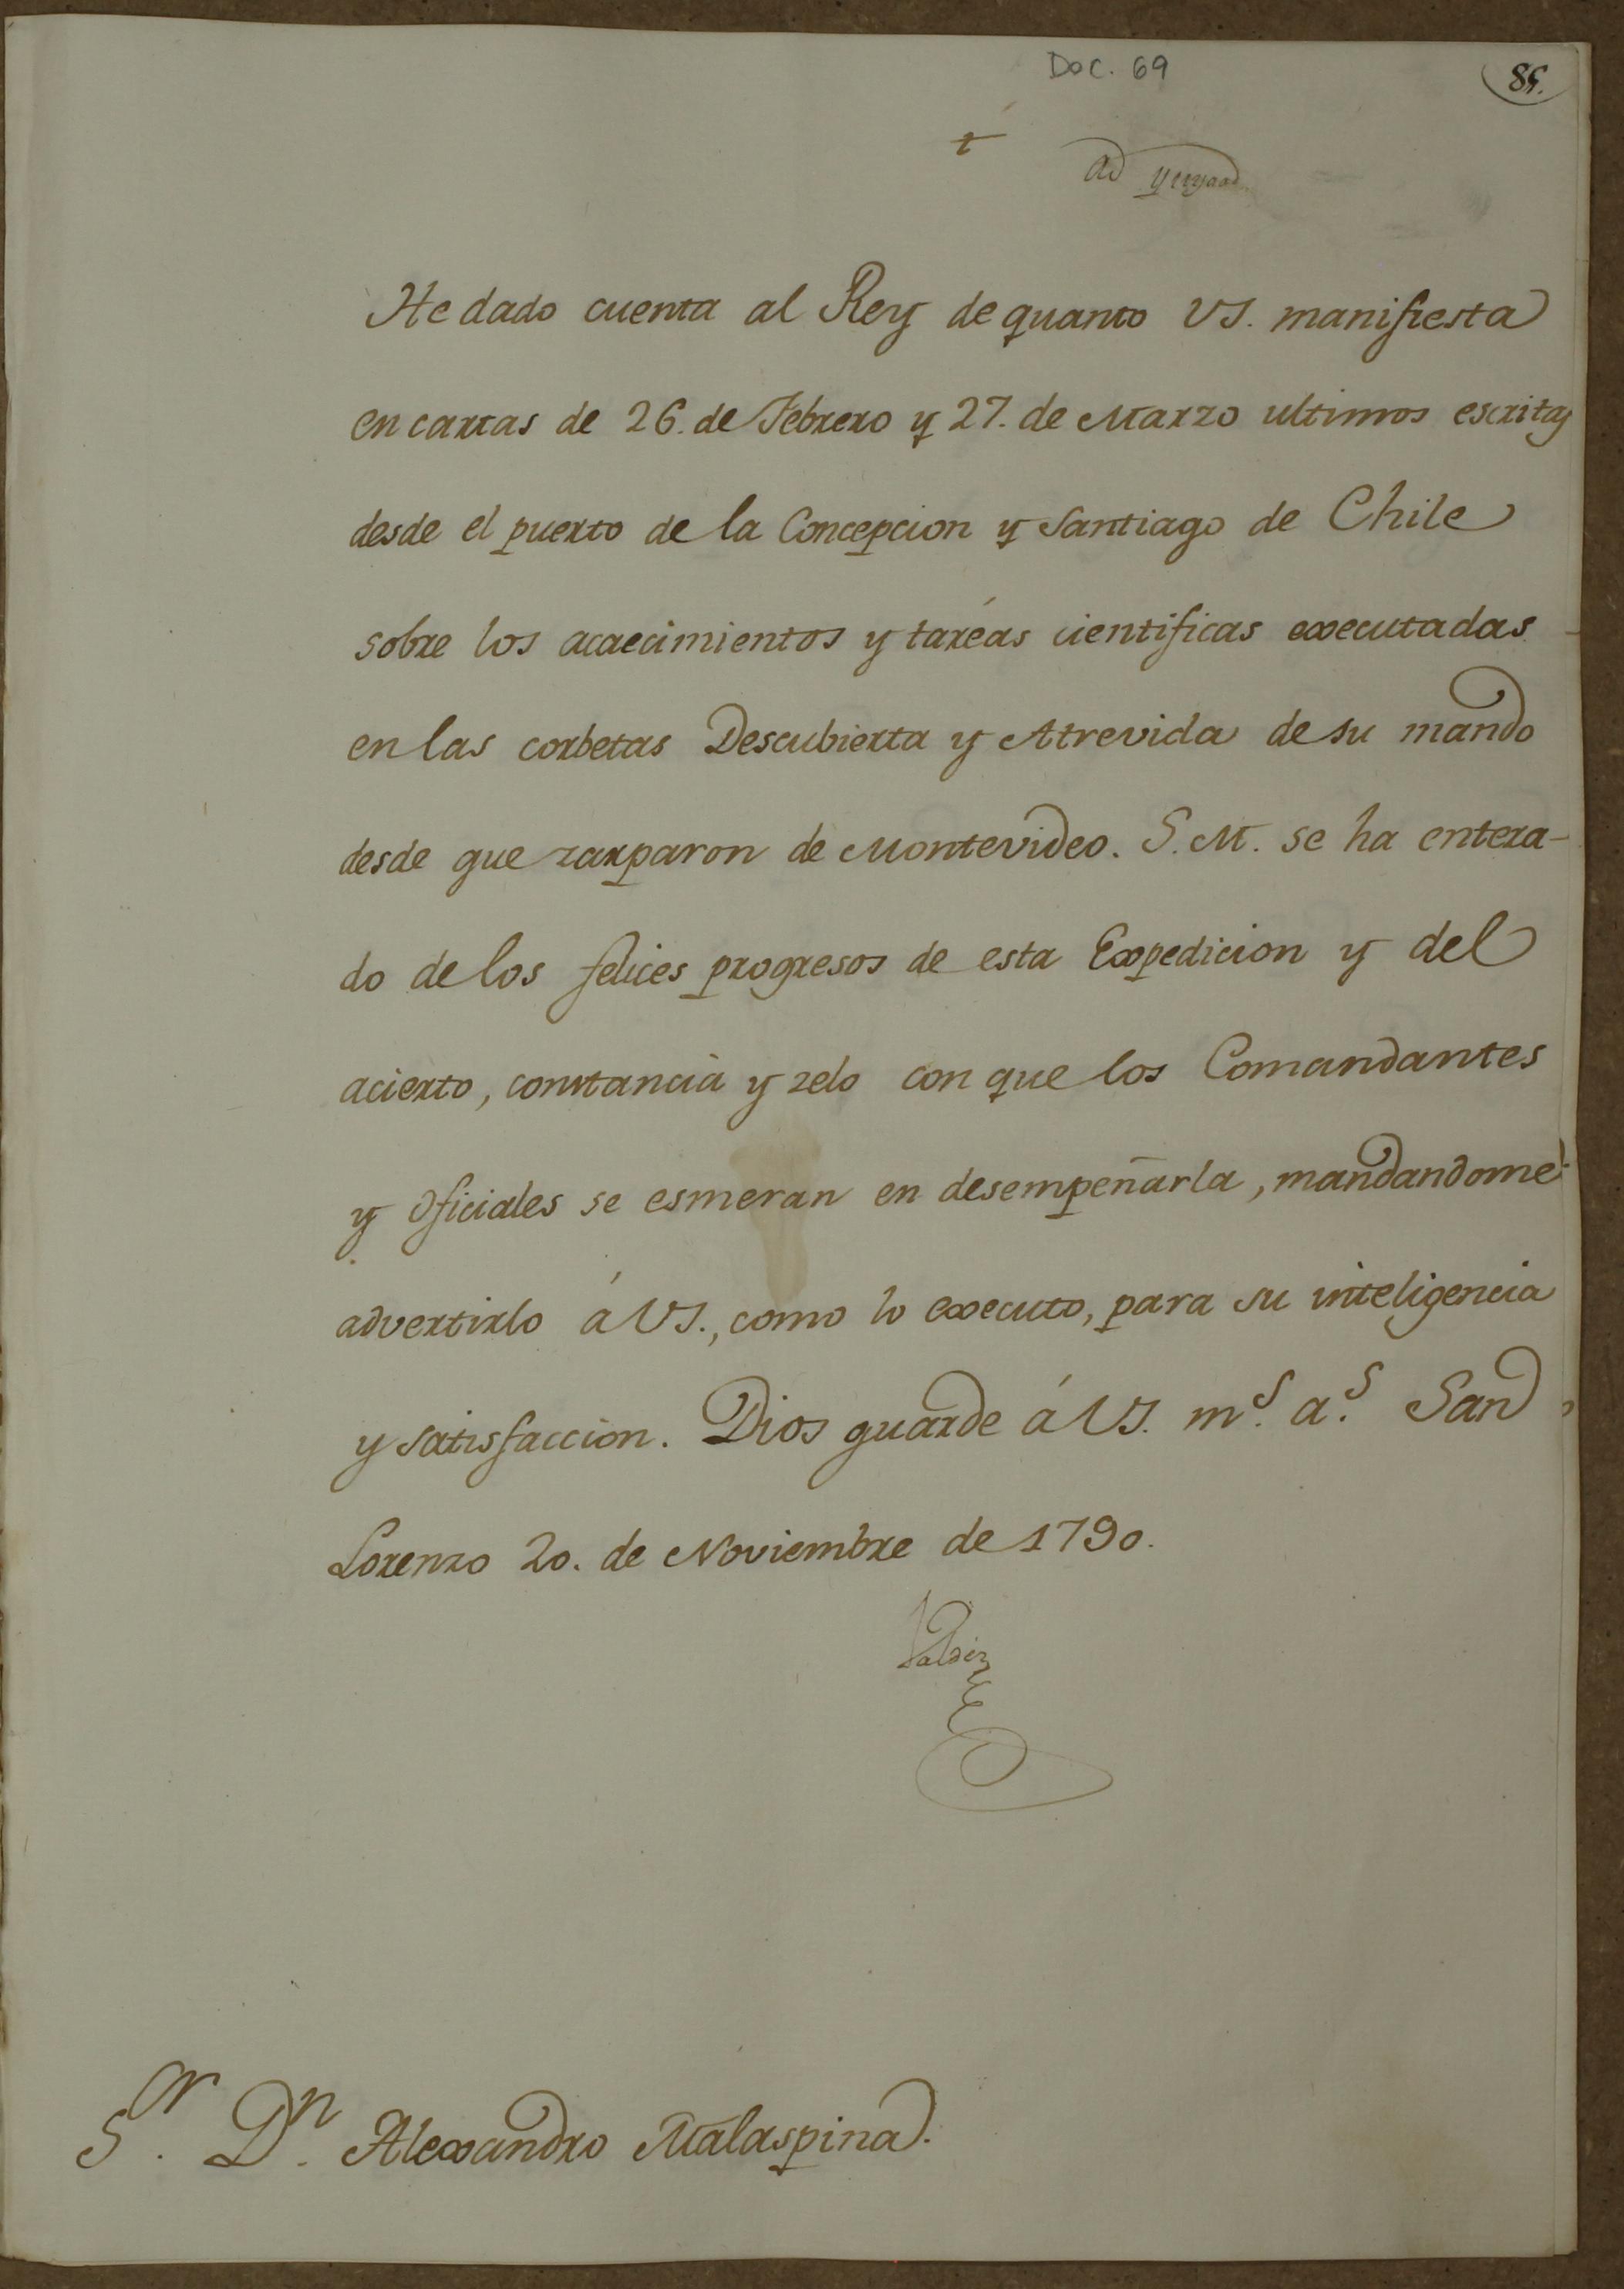 Doc. 69
85.
He dado cuenta al Rey de quanto VS. manifiesta
en cartas de 26. de Febrero y 27. de Marzo ultimos escritas
desde el puerto de la Concepcion y Santiago de Chile
sobre los acaecimientos y taréas cientificas executadas
en las corbetas Descubierta y Atrevida de su mando
desde que zarparon de Montevideo. S. M. se ha entera-
do de los felices progresos de esta Expedicion y del
acierto, constancia y zelo con que los Comandantes
y Oficiales se esmeran en desempeñarla, mandandome
advertirlo á VS., como lo executo, para su inteligencia
y satisfaccion. Dios guarde á VS. m.s a.s San
Lorenzo 20. de Noviembre de 1790.
Valdés
S.or D.n Alexandro Malaspina.